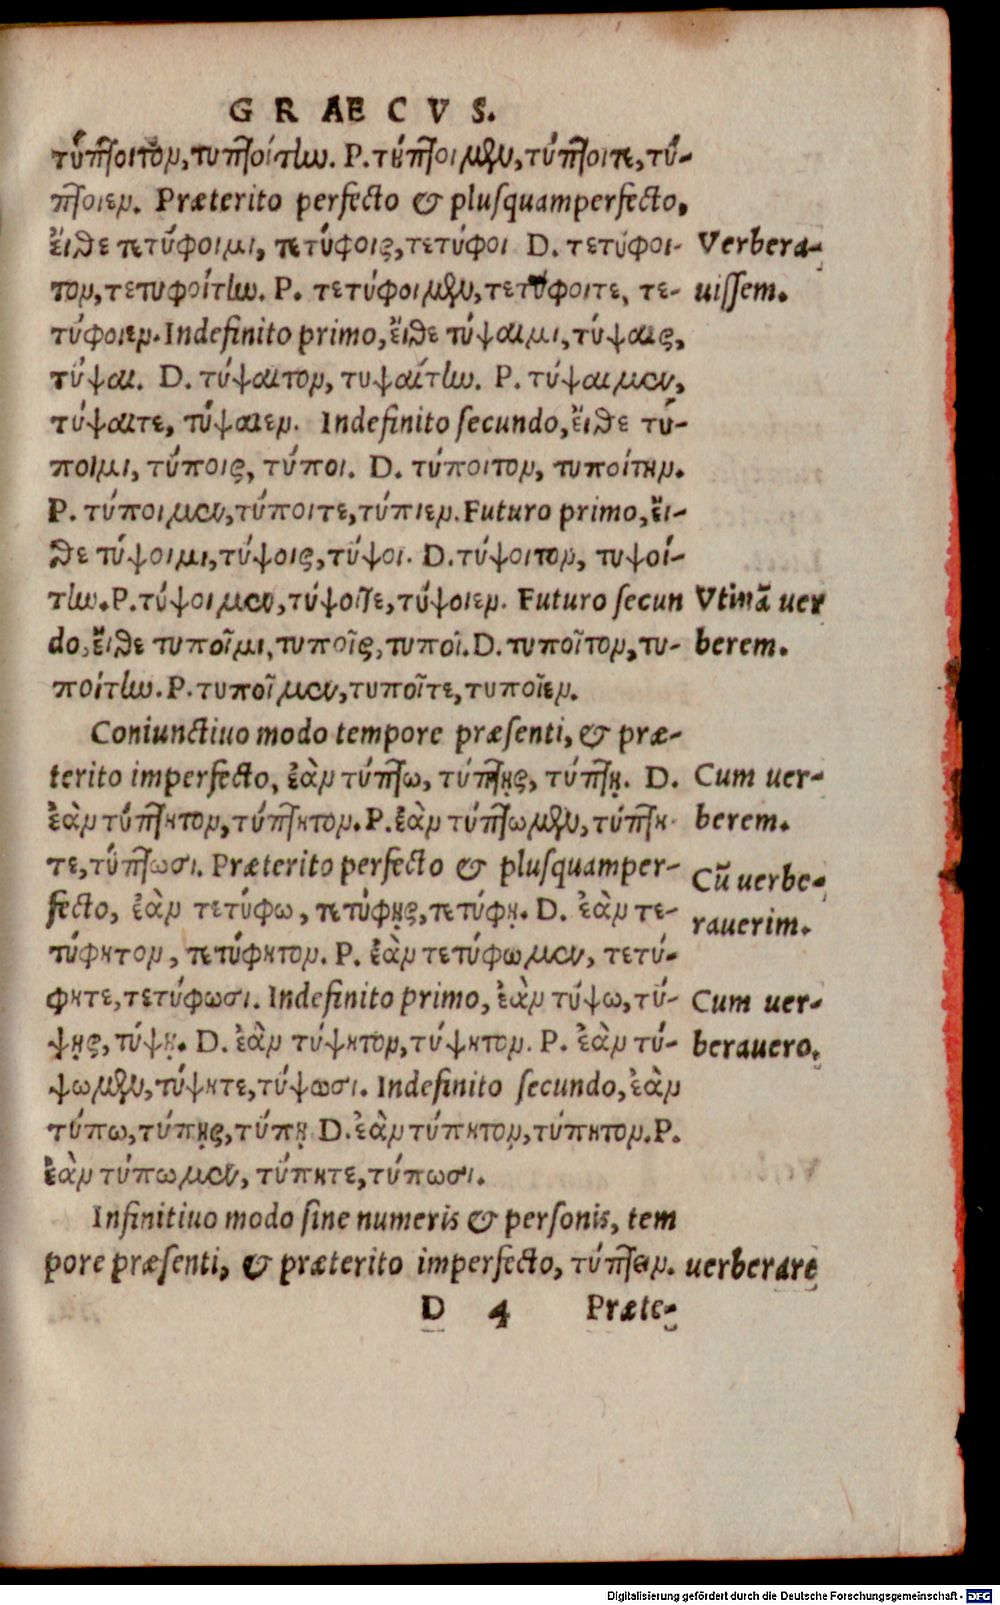 GRAECVS.
τύπτοιτον, τυπτοίτην. P. τύπτοιμεν, τύπτοιτε, τύ-
πτοιεν. Præterito perfecto & plusquamperfecto,
ἔιθε τετύφοιμι, τετύφοις, τετύφοι D. τετύφοι- Verbera-
τον, τετυφοίτην. P. τετύφοιμεν, τετύφοιτε, τε- uissem.
τύφοιεν. Indefinito primo, ἔιθε τύψαιμι, τύψαις,
τύψαι. D. τύψαιτον, τυψαίτην. P. τύψαιμεν,
τύψαιτε, τύψαιεν. Indefinito secundo, ἔιθε τύ-
ποιμι, τύποις, τύποι. D. τύποιτον, τυποίτην.
P. τύποιμεν, τύποιτε, τύπιεν. Futuro primo, ἔι-
θε τύψοιμι, τύψοις, τύψοι. D. τύψοιτον, τυψοί-
την. P. τύψοιμεν, τύψοιτε, τύψοιεν. Futuro secun Vtinã uer
do, ἔιθε τυποῖμι, τυποῖς, τυποῖ. D. τυποῖτον, τυ- berem.
ποίτην. P. τυποῖμεν, τυποῖτε, τυποῖεν.
Coniunctiuo modo tempore præsenti, & præ-
terito imperfecto, ἐὰν τύπτω, τύπτῃς, τύπτῃ. D. Cum uer-
ἐὰν τύπτητον, τύπτητον. P. ἐὰν τύπτωμεν, τύπτη- berem.
τε, τύπτωσι. Præterito perfecto & plusquamper- Cũ uerbe-
fecto, ἐὰν τετύφω, τετύφῃς, τετύφῃ. D. ἐὰν τε- rauerim.
τύφητον, τετύφητον. P. ἐὰν τετύφωμεν, τετύ-
φητε, τετύφωσι. Indefinito primo, ἐὰν τύψω, τύ- Cum uer-
ψῃς, τύψῃ. D. ἐὰν τύψητον, τύψητον. P. ἐὰν τύ- berauero.
ψωμεν, τύψητε, τύψωσι. Indefinito secundo, ἐὰν
τύπω, τύπῃς, τύπῃ D. ἐὰν τύπητον, τύπητον. P.
ἐὰν τύπωμεν, τύπητε, τύπωσι.
Infinitiuo modo sine numeris & personis, tem
pore præsenti, & præterito imperfecto, τύπτειν. uerberare
D 4 Præte-
Digitalisierung gefördert durch die Deutsche Forschungsgemeinschaft - DFG